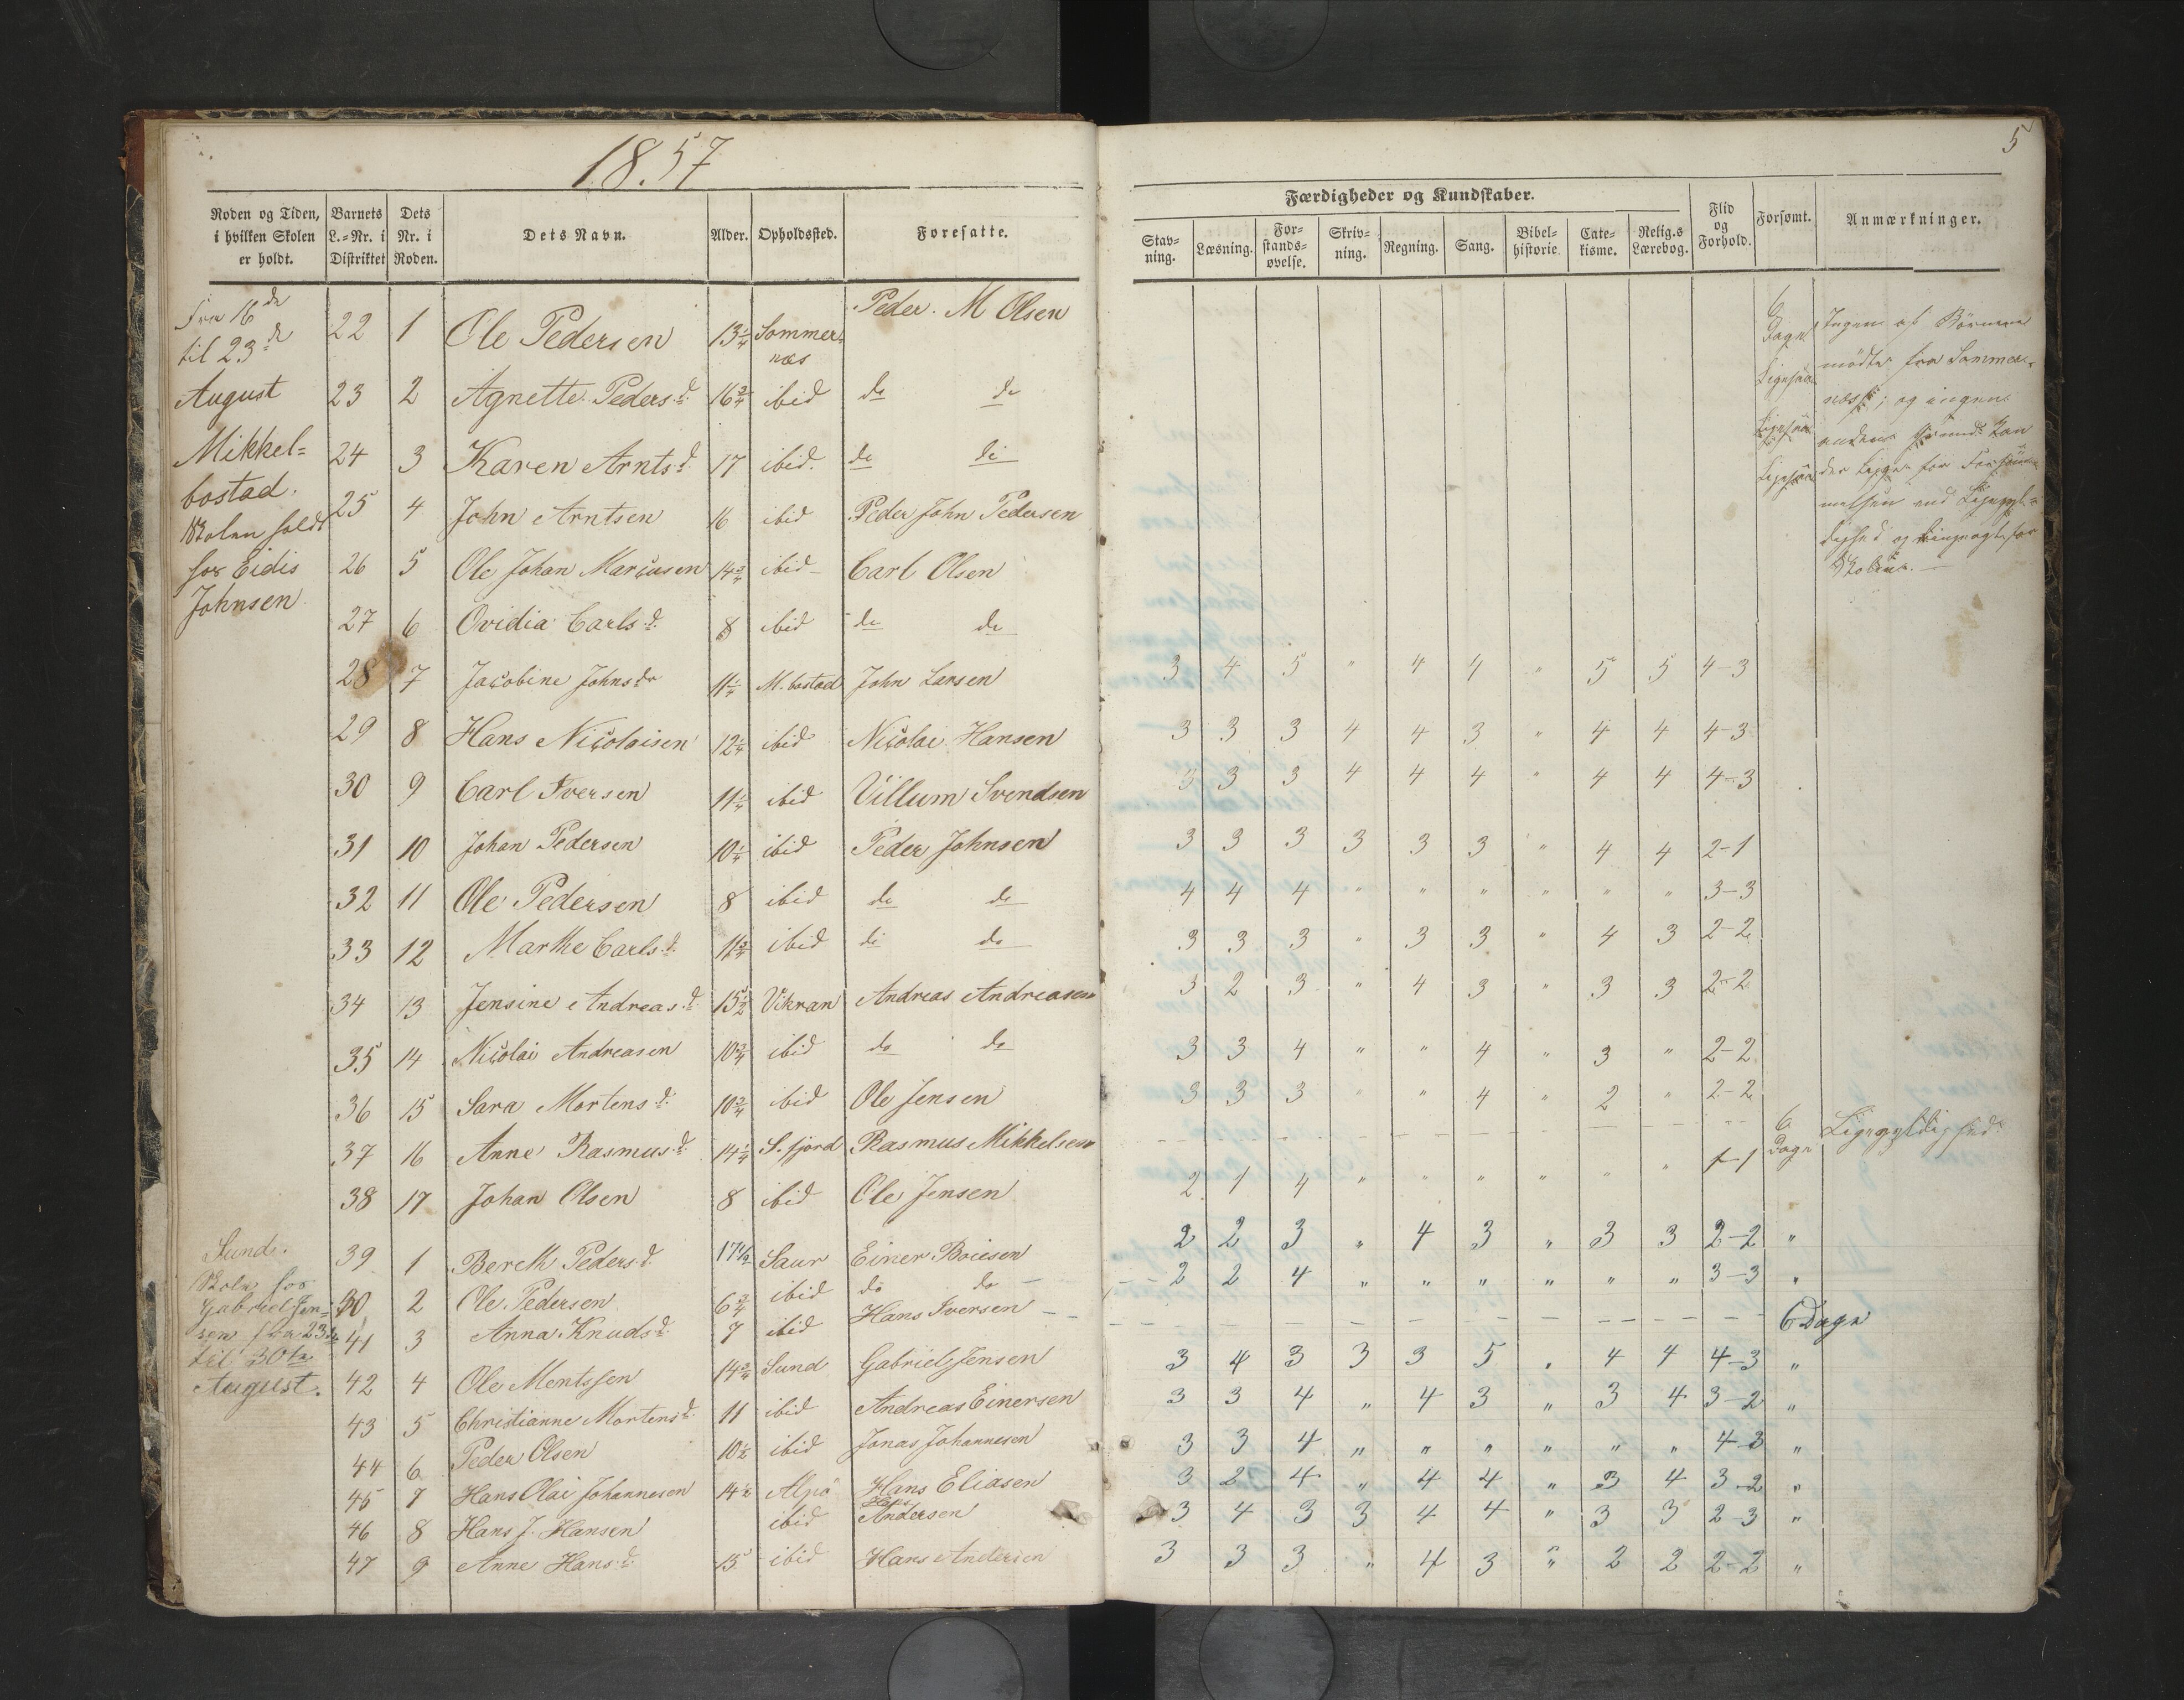 1857
5
Roden og Tiden, i hvilken Skolen er holdt. | Barnets L.-Nr. i Distriktet | Dets Nr. i Roden. | Dets Navn. | Alder. | Opholdssted. | Foresatte.
Færdigheder og Kundskaber.
Stavning. | Læsning. | Forstandsøvelse. | Skrivning. | Regning. | Sang. | Bibelhistorie. | Catekisme. | Relig.s Lærebog. | Flid og Forhold. | Forsømt. | Anmærkninger.
Fra 16de
til 23de
August
Mikkel=
bostad.
Skolen holdt
hos Eidis
Johnsen
22 1 Ole Pedersen 13 1/4 Sommernæs Peder M Olsen 6 Dage
23 2 Agnette Pedersd. 16 3/4 ibid do do Ligesaa
24 3 Karen Arntsd. 17 ibid. do do Ligesaa
25 4 John Arntsen 16 ibid Peder John Pedersen Ligesaa
26 5 Ole Johan Marcusen 14 3/4 ibid Carl Olsen
27 6 Ovidia Carlsd. 8 ibid do do
28 7 Jacobine Johnsdr 11 1/4 M.bostad John Larsen 3 4 5 " 4 4 " 5 5 4-3
29 8 Hans Nicolaisen 12 1/4 ibid Nicolai Hansen 3 3 3 4 4 3 " 4 4 4-3
30 9 Carl Iversen 11 1/4 ibid Villum Svendsen 3 3 3 4 4 4 " 4 4 4-3
31 10 Johan Pedersen 10 1/4 ibid Peder Johnsen 3 3 3 3 3 3 " 4 4 2-1
32 11 Ole Pedersen 8 ibid do do 4 4 4 " " " " " " 3-3
33 12 Marthe Carlsd. 11 3/4 ibid do do 3 3 3 " 3 3 " 4 3 2-2
34 13 Jensine Andreasd. 15 1/2 Vikran Andreas Andreasen 3 2 3 " 4 3 " 3 3 2-2
35 14 Nicolai Andreasen 10 3/4 ibid do do 3 3 4 " " 4 " 3 " 2-2
36 15 Sara Mortensd. 10 3/4 ibid Ole Jensen 3 3 3 " " 4 " 2 " 2-2
37 16 Anne Rasmusd. 14 1/4 S.fjord Rasmus Mikkelsen - - - - - - - - - - 6 Dage Ligegyldighed
38 17 Johan Olsen 8 ibid Ole Jensen 2 1 4 " " " " " " 1-1
Ingen af Börnene
mödte fra Sommer=
næss; og ingen
anden Grund kan
der ligge for Forsöm=
melsen end Ligegyl=
dighed og Ringeagt for
Skolen. —
Sund.
Skole hos
Gabriel Jen=
sen fra 23de
til 30te
August.
39 1 Bereth Pedersd. 17 1/2 Saur Einer Boiesen 2 2 3 " 4 3 " 3 3 2-2 "
40 2 Ole Pedersen 6 3/4 ibid do do 2 2 4 " " " " " " 3-3 "
41 3 Anna Knudsd. 7 ibid Hans Iversen - - - - - - - - - - 6 Dage
42 4 Ole Mentssen 14 3/4 Sund Gabriel Jensen 3 4 3 3 3 5 " 4 4 4-3 "
43 5 Christianne Mortensd. 11 ibid Andreas Einersen 3 3 4 " 4 3 " 3 4 3-2 "
44 6 Peder Olsen 10 1/2 ibid Jonas Johannesen 3 3 4 " " " " " " 4-3 "
45 7 Hans Olai Johannesen 14 1/2 Alpö Hans Eliasen 3 2 4 " 4 4 " 3 4 3-2 "
46 8 Hans J. Hansen ibid Hans Andersen 3 4 3 3 4 4 " 3 3 2-3 "
47 9 Anne Hansd. 15 ibid Hans Andersen 3 3 3 " 4 3 " 2 2 2-2 "